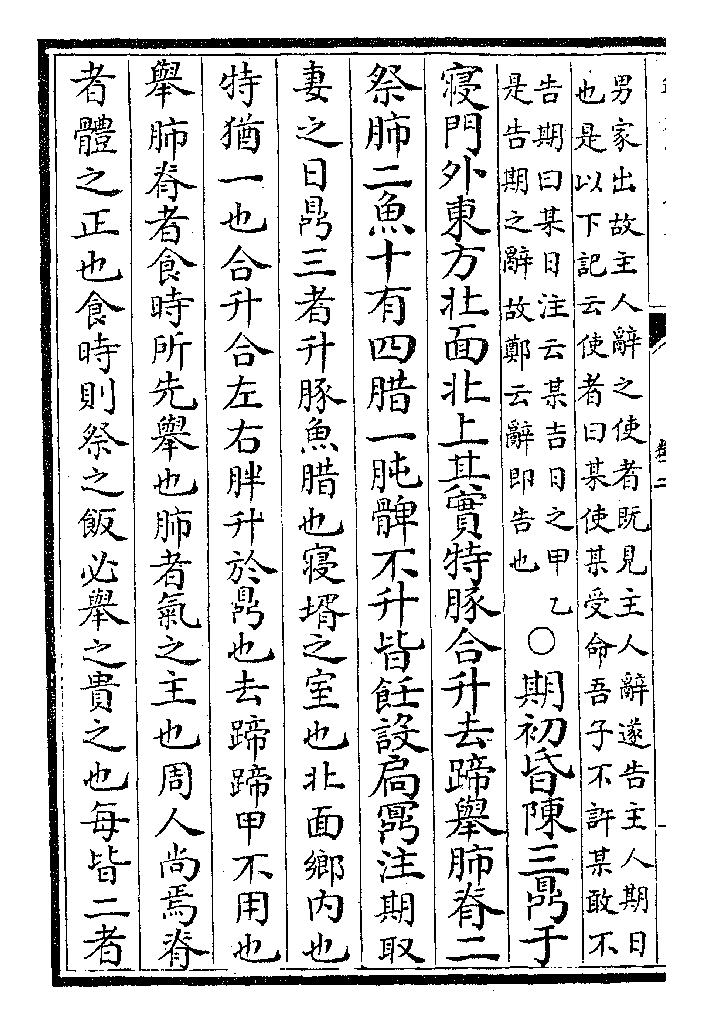 男家出故主人辭之使者既見主人辭遂告主人期日
也是以下記云使者曰某使某受命吾子不許某敢不
告期曰某日注云某吉日之甲乙
是告期之辭故鄭云辭即告也
○期初昏陳三鼎于
寢門外東方北面北上其實特豚合升去蹄舉肺脊二
祭肺二魚十有四腊一肫髀不升皆飪設扃鼏注期取
妻之日鼎三者升豚魚腊也寢壻之室也北面鄉内也
特猶一也合升合左右胖升於鼎也去蹄蹄甲不用也
舉肺脊者食時所先舉也肺者氣之主也周人尚焉脊
者體之正也食時則祭之飯必舉之貴之也每皆二者